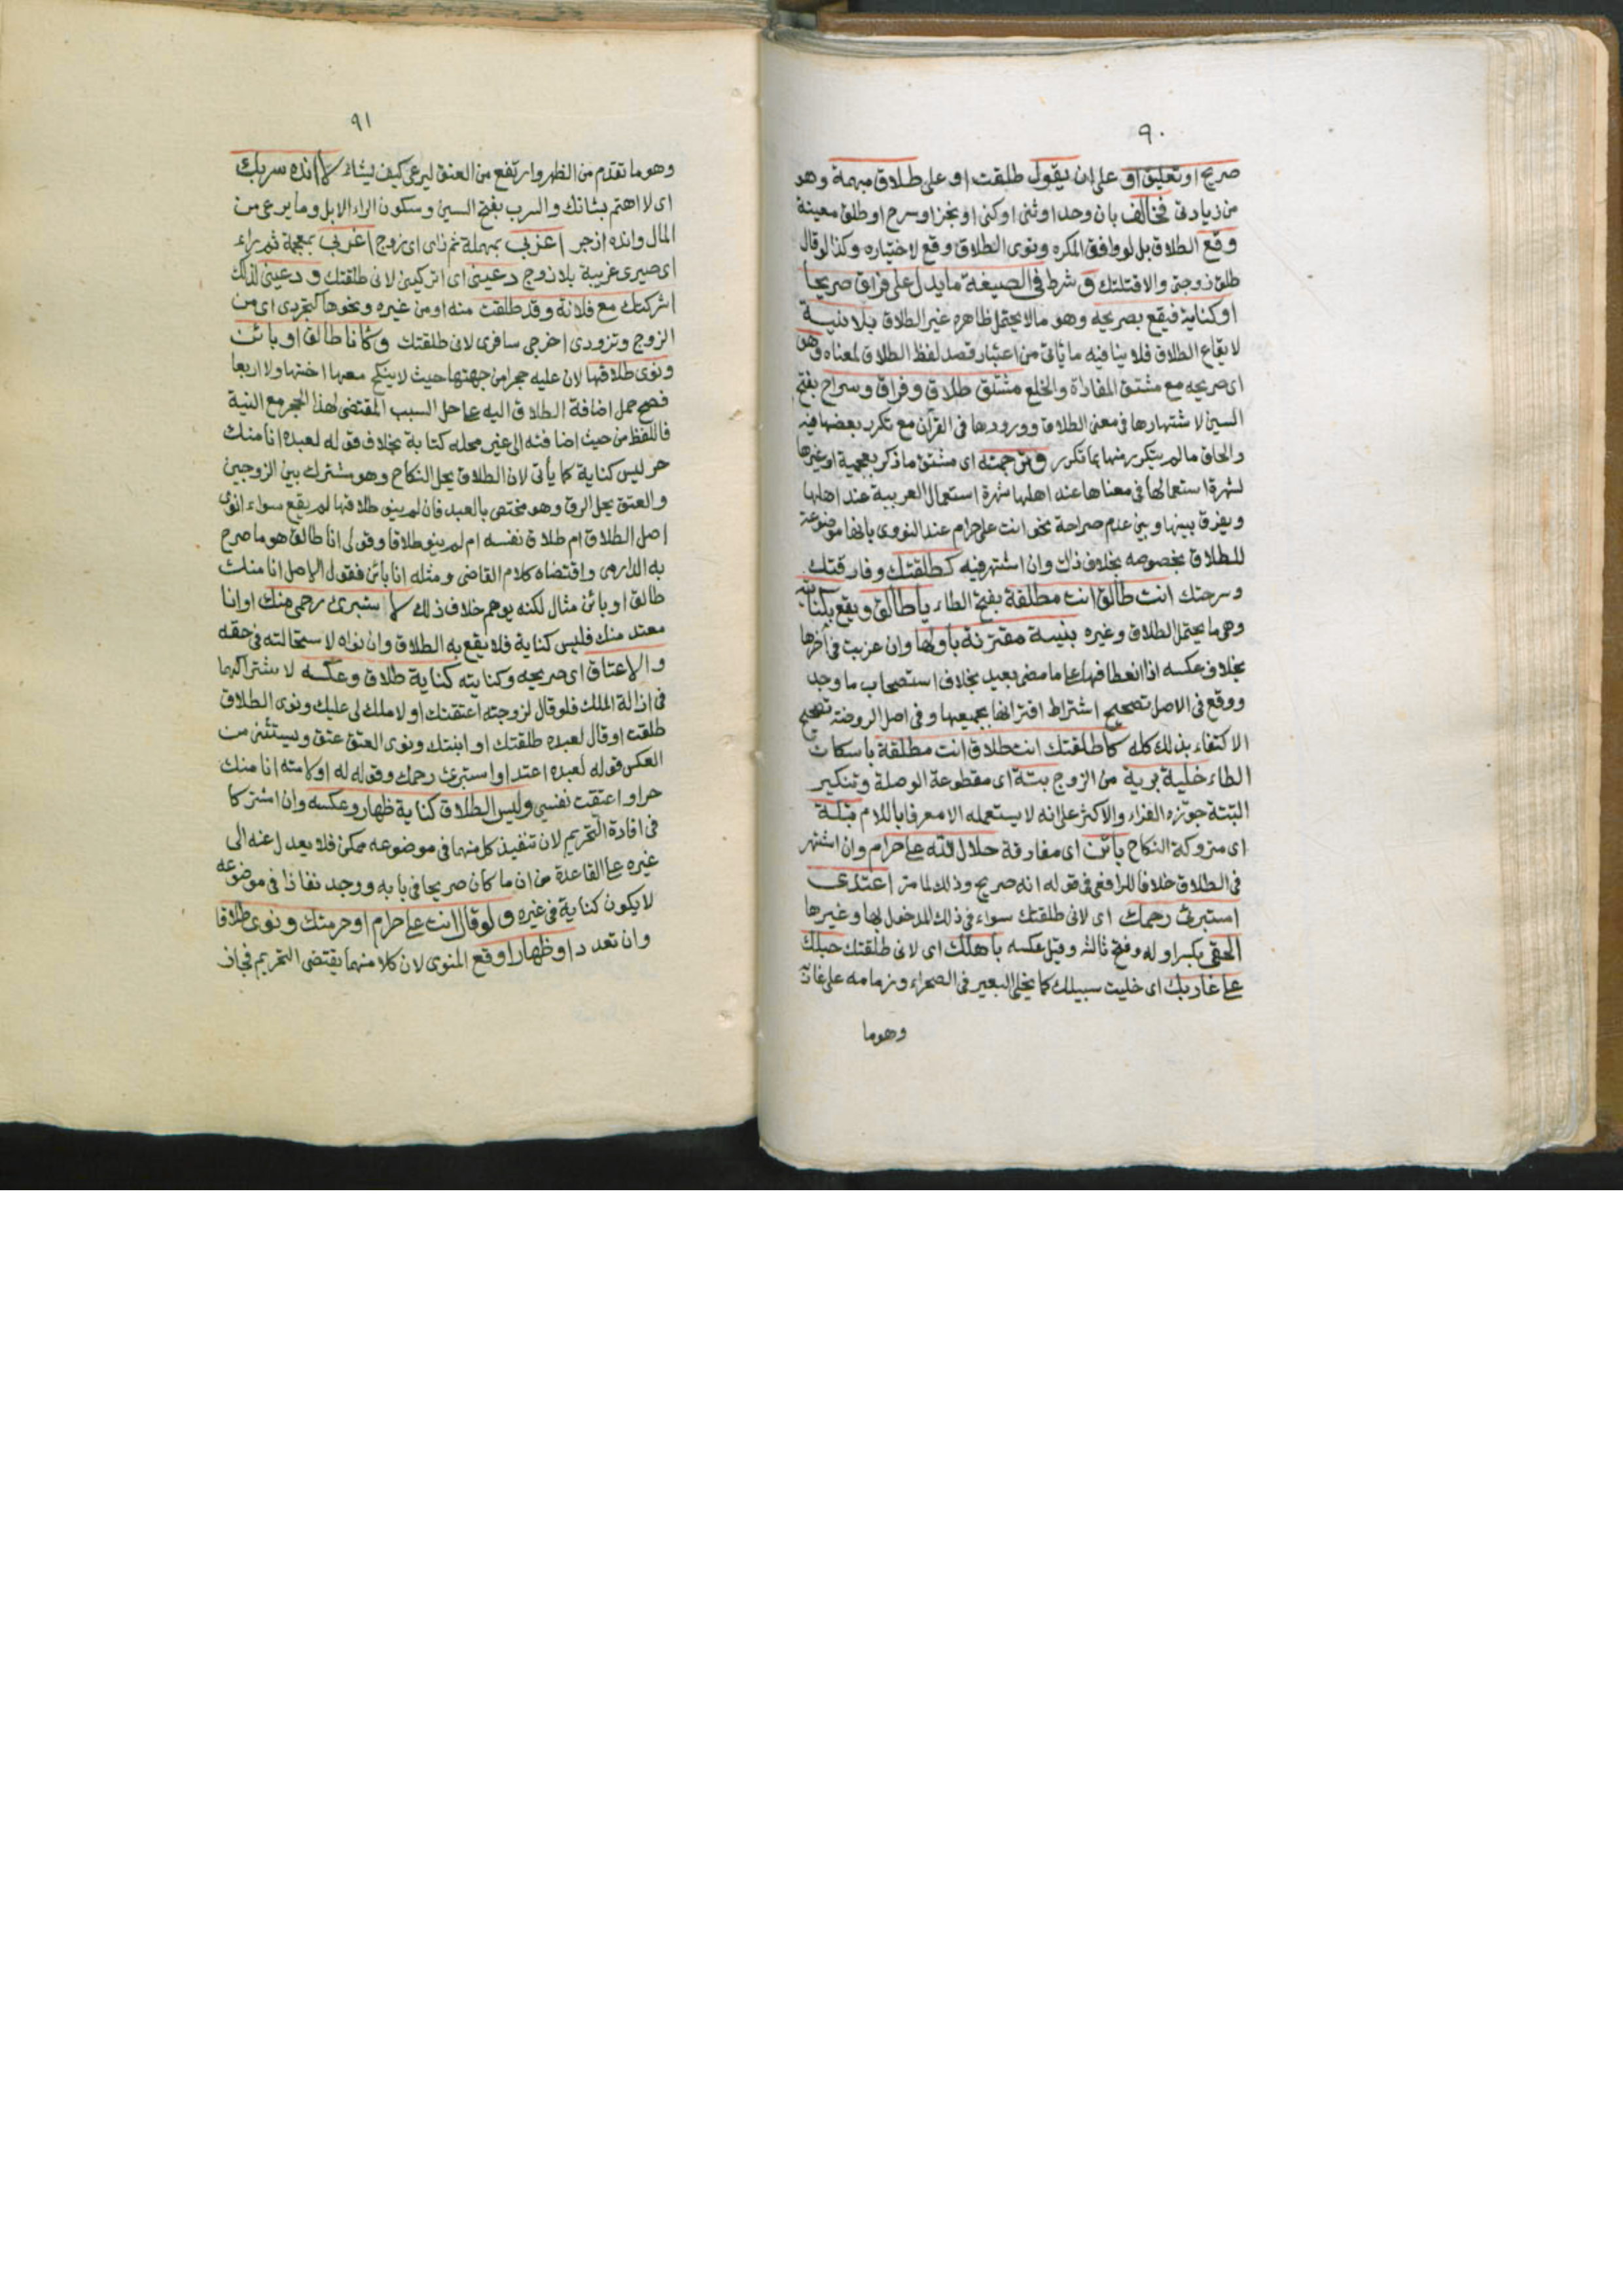 ٩٠
صريح او تعليق او على ان يقول طلقت او على طلاق مبهمة وهو
من زيادتى فخالف بان وحد او ثنى او كنى او نجز او سرح او طلق معينة
وقع الطلاق بل لو وافق المكره ونوى الطلاق وقع لاختياره وكذا لو قال
طلق زوجتى والا قتلتك و شرط فى الصيغة ما يدل على فراق صريحا
او كناية فيقع بصريحه وهو ما لا يحتمل ظاهره غير الطلاق بلا نية
لايقاع الطلاق فلا ينافيه ما يأتى من اعتبار قصد لفظ الطلاق لمعناه وهو
اى صريحه مع مشتق المفاداة والخلع مشتق طلاق وفراق وسراح بفتح
السين لاشتهارها فى معنى الطلاق وورودها فى القرآن مع تكرر بعضها فيه
والحاق ما لم يتكرر منها بما تكرر وترجمته اى مشتق ما ذكر بعجمية او غيرها
لشهرة استعمالها فى معناها عند اهلها شهرة استعمال العربية عند اهلها
ويفرق بينها وبين عدم صراحة نحو انت على حرام عند النووى بانها موضوعة
للطلاق بخصوصه بخلاف ذلك وان اشتهر فيه كطلقتك وفارقتك
وسرحتك انت طالق انت مطلقة بفتح الطاء يا طالق ويقع بكناية
وهى ما يحتمل الطلاق وغيره بنية مقترنة باولها وان عزبت فى آخرها
بخلاف عكسه اذ انعطافها على ما مضى بعيد بخلاف استصحاب ما وجد
ووقع فى الاصل تصحيح اشتراط اقترانها بجميعها وفى اصل الروضة تصحيح
الاكتفاء بذلك كله كاطلقتك انت طلاق انت مطلقة باسكان
الطاء خلية برية من الزوج بتة اى مقطوعة الوصلة وتنكير
البتة جوزه الفراء والاكثر على انه لا يستعمله الا معرفا باللام بتلة
اى متروكة النكاح بائن اى مفارقة حلال الله على حرام وان اشتهر
فى الطلاق خلافا للرافعى فى قوله انه صريح وذلك لما مر اعتدى
استبرئ رحمك اى لانى طلقتك سواء فى ذلك المدخول بها وغيرها
الحقى بكسر اوله وفتح ثالثه وقيل عكسه باهلك اى لانى طلقتك حبلك
على غاربك اى خليت سبيلك كما يخلى البعير فى الصحراء وزمامه على غاربه
وهو ما
٩١
وهو ما تقدم من الظهر وارتفع من العنق ليرعى كيف يشاء لا انده سربك
اى لا اهتم بشانك والسرب بفتح السين وسكون الراء الابل وما يرعى من
المال وانده ازجر اعزبى بمهملة ثم زاى اى زوج اغربى بمعجمة ثم راء
اى صيرى غريبة بلا زوج دعينى اى اتركينى لانى طلقتك و دعينى لذلك
اشركتك مع فلانة وقد طلقت منه او من غيره ونحوها كتجردى اى من
الزوج وتزودى اخرجى سافرى لانى طلقتك وكانا طالق او بائن
ونوى طلاقها لان عليه حجرا من جهتها حيث لا ينكح معها اختها ولا اربعا
فصح حمل اضافة الطلاق اليه على حل السبب المقتضى لهذا الحجر مع النية
فاللفظ من حيث اضافته الى غير محله كناية بخلاف قوله لعبده انا منك
حر ليس كناية كما يأتى لان الطلاق يحل النكاح وهو مشترك بين الزوجين
والعتق يحل الرق وهو مختص بالعبد فان لم ينو طلاقها لم يقع سواء انوى
اصل الطلاق ام طلاق نفسه ام لم ينو طلاقا وقولى انا طالق هو ما صرح
به الدارمى واقتضاه كلام القاضى ومثله انا بائن فقول الاصل انا منك
طالق او بائن مثال لكنه يوهم خلاف ذلك لا استبرئ رحمى منك او انا
معتد منك فليس كناية فلا يقع به الطلاق وان نواه لاستحالته فى حقه
والاعتاق اى صريحه وكنايته كناية طلاق وعكسه لاشتراكهما
فى ازالة الملك فلو قال لزوجته اعتقتك او لا ملك لى عليك ونوى الطلاق
طلقت او قال لعبده طلقتك او ابنتك ونوى العتق عتق ويستثنى من
العكس قوله لعبده اعتد او استبرئ رحمك وقوله له او لامته انا منك
حر او اعتقت نفسى وليس الطلاق كناية ظهار وعكسه وان اشتركا
فى افادة التحريم لان تنفيذ كل منهما فى موضوعه ممكن فلا يعدل عنه الى
غيره على القاعدة من ان ما كان صريحا فى بابه ووجد نفاذا فى موضوعه
لا يكون كناية فى غيره ولو قال انت على حرام او حرمتك ونوى طلاقا
وان تعدد او ظهارا وقع المنوى لان كلا منهما يقتضى التحريم فجاز